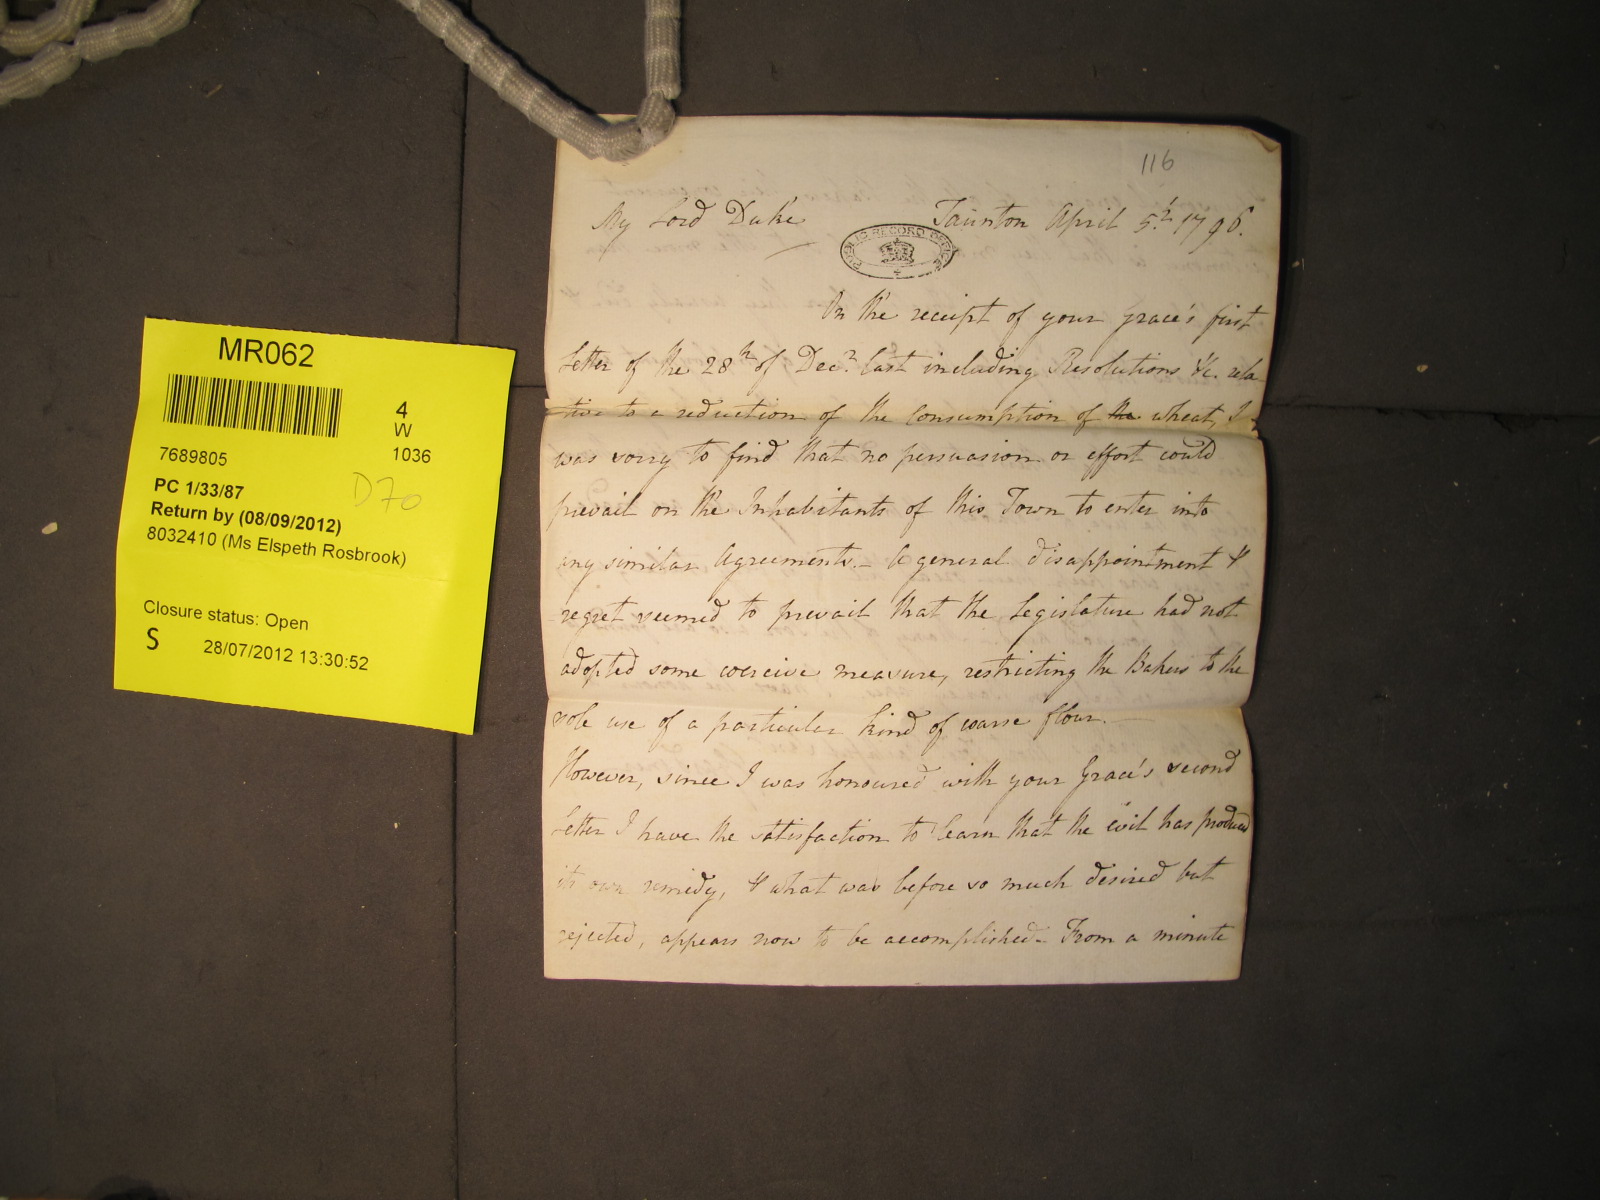 116
My Lord Duke Taunton April 5th. 1796.
PUBLIC RECORD OFFICE
On the receipt of your Grace's first
Letter of the 28th of Decr. last including Resolutions &c. rela
tive to a reduction of the Consumption of the wheat, I
was sorry to find that no persuasion or effort could
prevail on the Inhabitants of this Town to enter into
any similar Agreements.- A general disappointment &
regret seemed to prevail that the Legislature had not
adopted some coercive measure, restricting the Bakers to the
sole use of a particular kind of coarse flour.—
However, since I was honoured with your Grace's second
Letter I have the satisfaction to learn that the evil has produced
its own remedy, & what was before so much desired but
rejected, appears now to be accomplished- From a minute
MR062
4
W
1036
7689805
PC 1/33/87
D70
Return by (08/09/2012)
8032410 (Ms Elspeth Rosbrook)
Closure status: Open
S
28/07/2012 13:30:52